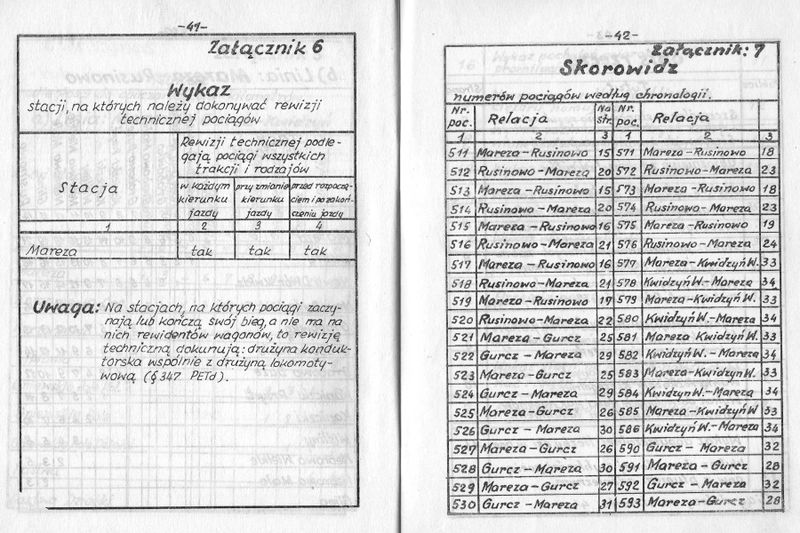 -41-
Załącznik 6
Wykaz
stacji, na których należy dokonywać rewizji
technicznej pociągów
Stacja
Rewizji technicznej podle-
gają pociągi wszystkich
trakcji i rodzajów
w każdym kierunku jazdy
przy zmianie kierunku jazdy
przed rozpoczę-ciem i po zakoń-czeniu jazdy
1 2 3 4
Mareza tak tak tak
Uwaga: Na stacjach, na których pociągi zaczy-
nają lub kończą swój bieg, a nie ma na
nich rewidentów wagonów, to rewizję
techniczną dokunują: drużyna konduk-
torska wspólnie z drużyną lokomoty-
wową (§ 347 PETd).
-42-
Załącznik: 7
Skorowidz
numerów pociągów według chronologii.
Nr. poc. Relacja Na str. Nr. poc. Relacja
1 2 3 1 2 3
511 Mareza-Rusinowo 15 571 Mareza-Rusinowo 18
512 Rusinowo-Mareza 20 572 Rusinowo-Mareza 23
513 Mareza-Rusinowo 15 573 Mareza-Rusinowo 18
514 Rusinowo-Mareza 20 574 Rusinowo-Mareza 23
515 Mareza-Rusinowo 16 575 Mareza-Rusinowo 19
516 Rusinowo-Mareza 21 576 Rusinowo-Mareza 24
517 Mareza-Rusinowo 16 577 Mareza-Kwidzyń W. 33
518 Rusinowo-Mareza 21 578 Kwidzyń W.-Mareza 34
519 Mareza-Rusinowo 17 579 Mareza-Kwidzyń W. 33
520 Rusinowo-Mareza 22 580 Kwidzyń W.-Mareza 34
521 Mareza-Gurcz 25 581 Mareza Kwidzyń W. 33
522 Gurcz-Mareza 29 582 Kwidzyń W.-Mareza 34
523 Mareza-Gurcz 25 583 Mareza-Kwidzyń W. 33
524 Gurcz-Mareza 29 584 Kwidzyń W.-Mareza 34
525 Mareza-Gurcz 26 585 Mareza-Kwidzyń W. 33
526 Gurcz-Mareza 30 586 Kwidzyń W.-Mareza 34
527 Mareza-Gurcz 26 590 Gurcz-Mareza 32
528 Gurcz-Mareza 30 591 Mareza-Gurcz 28
529 Mareza-Gurcz 27 592 Gurcz-Mareza 32
530 Gurcz-Mareza 31 593 Mareza-Gurcz 28